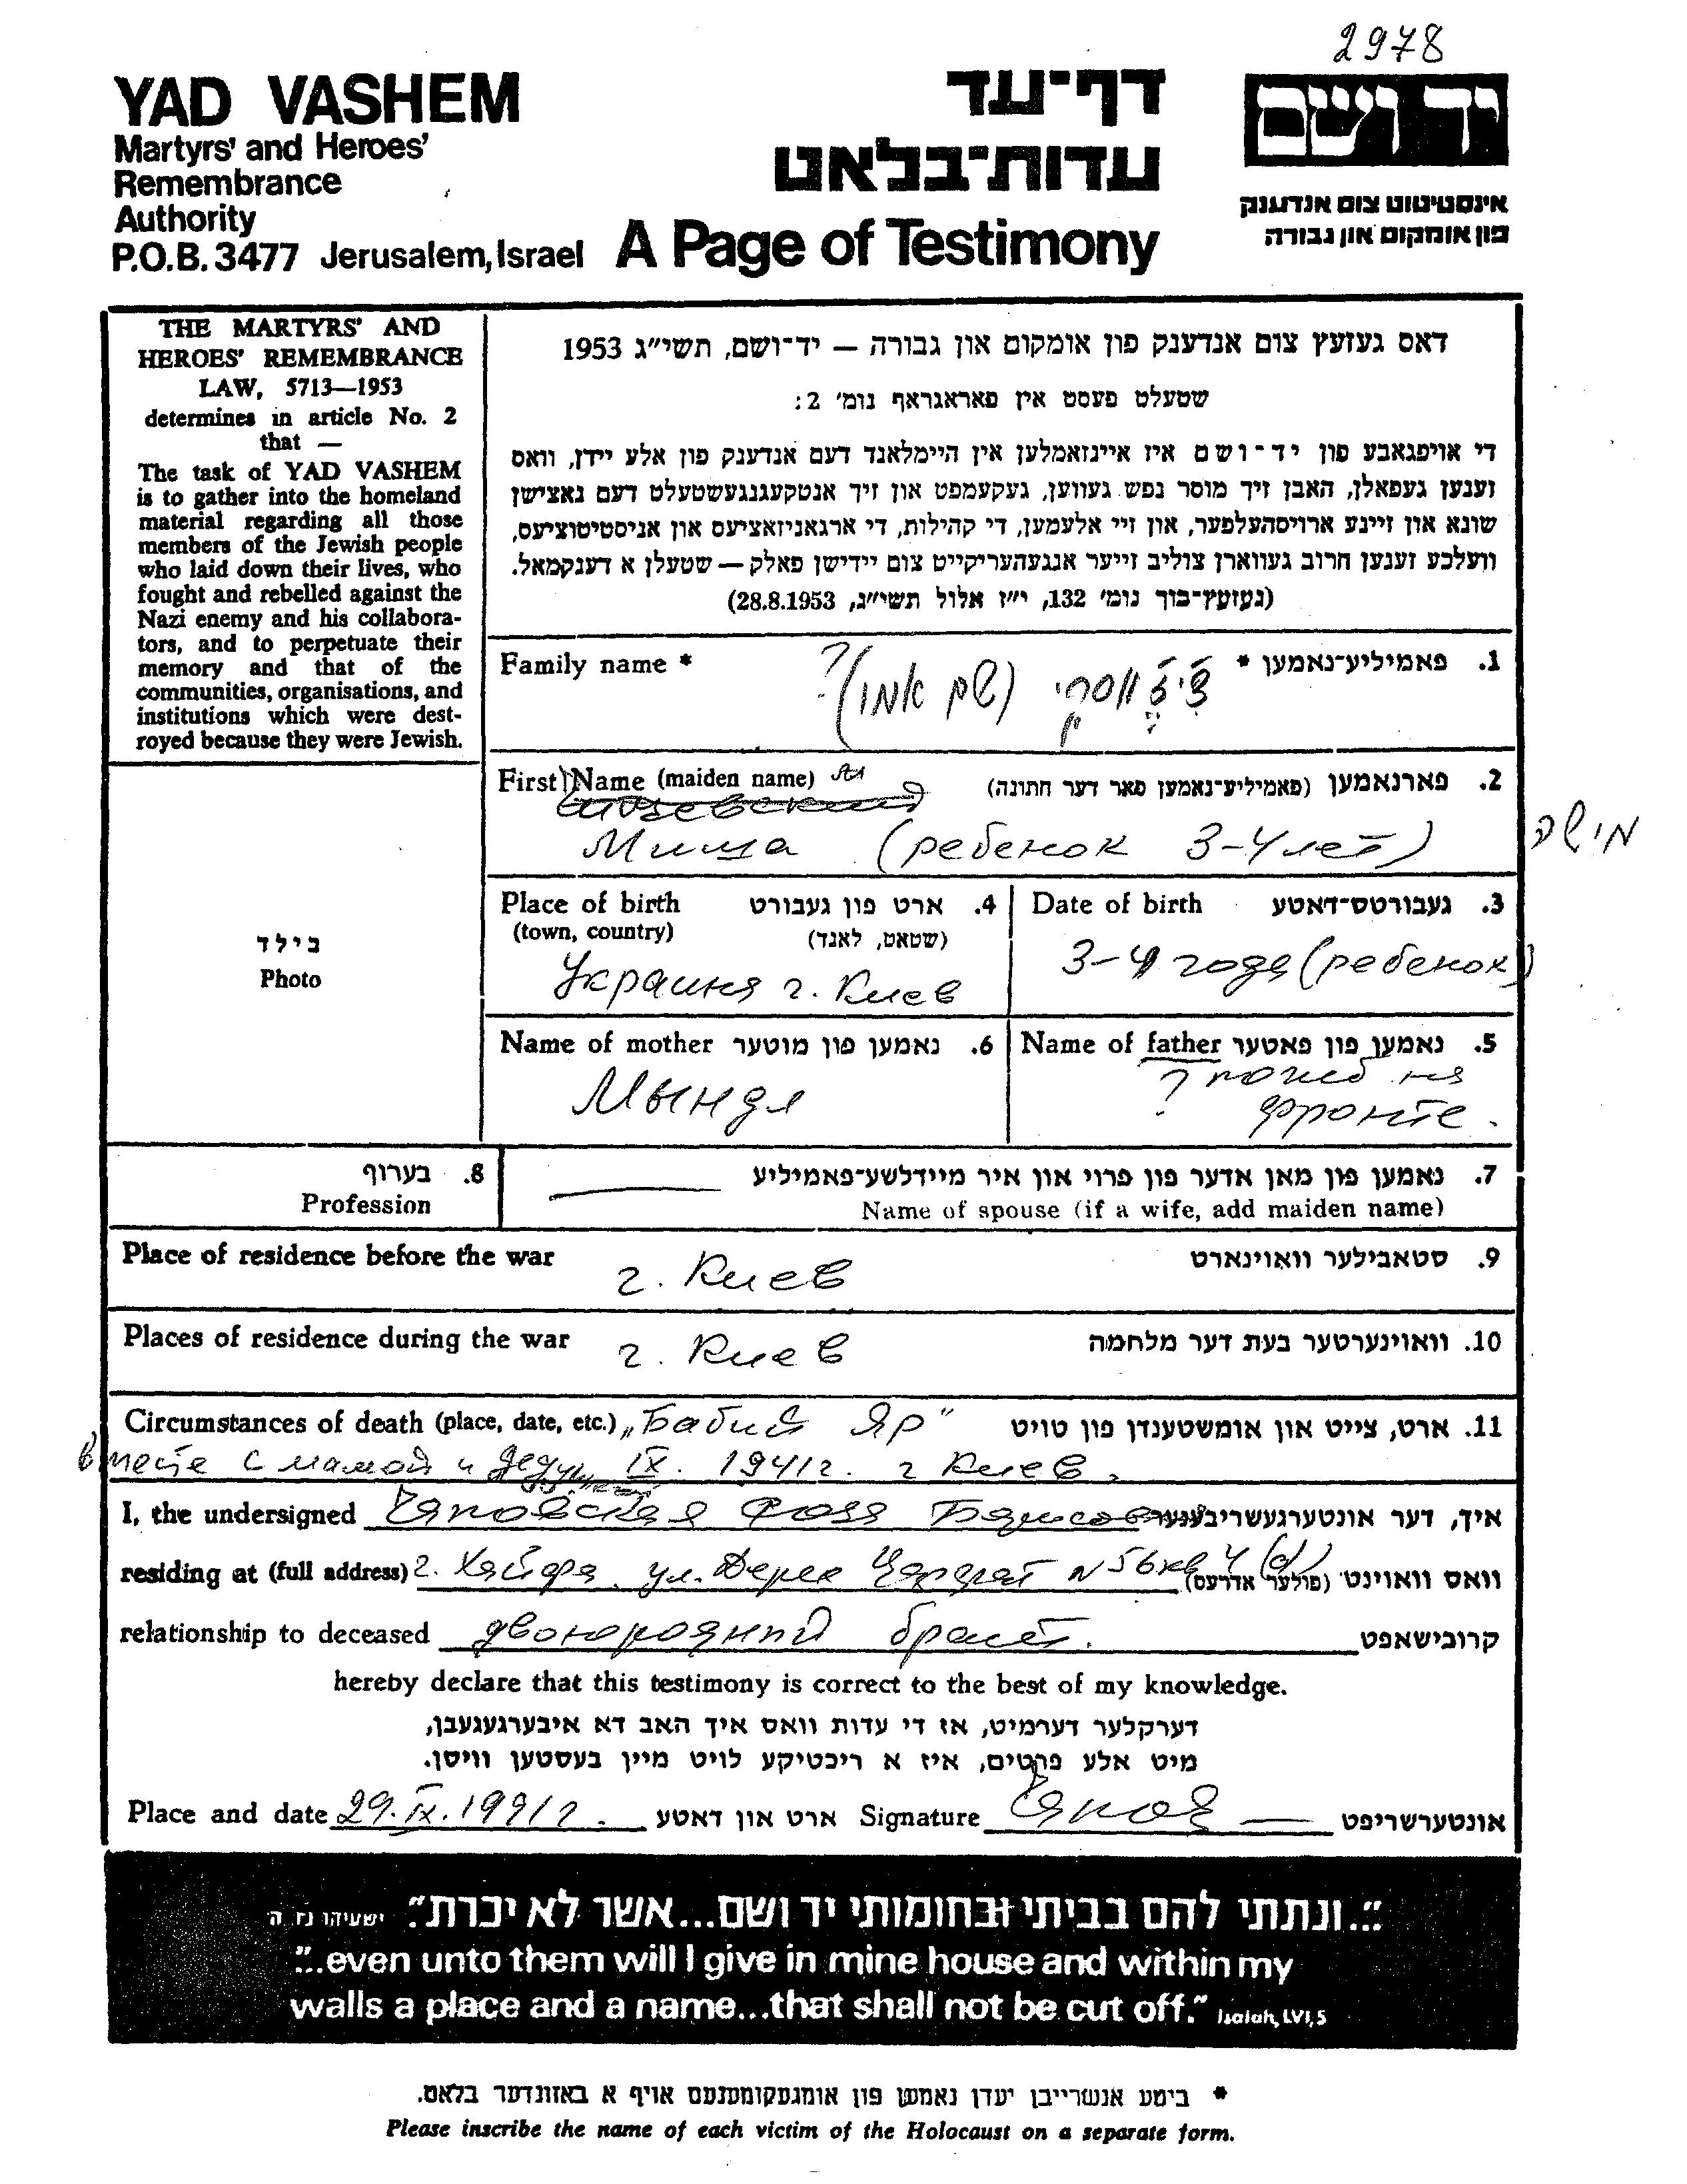 2978
YAD VASHEM
Martyrs' and Heroes'
Remembrance
Authority
P.O.B. 3477 Jerusalem, Israel
דף-עד
עדות-בלאט
A Page of Testimony
יד ושם
אינסטיטוט צום אנדענק
פון אומקום און גבורה
THE MARTYRS' AND
HEROES' REMEMBRANCE
LAW, 5713—1953
determines in article No. 2
that —
The task of YAD VASHEM
is to gather into the homeland
material regarding all those
members of the Jewish people
who laid down their lives, who
fought and rebelled against the
Nazi enemy and his collabora-
tors, and to perpetuate their
memory and that of the
communities, organisations, and
institutions which were dest-
royed because they were Jewish.
דאס געזעץ צום אנדענק פון אומקום און גבורה — יד-ושם, תשי"ג 1953
שטעלט פעסט אין פאראגראף נומ' 2:
די אויפגאבע פון יד-ושם איז איינזאמלען אין היימלאנד דעם אנדענק פון אלע יידן, וואס
זענען געפאלן, האבן זיך מוסר נפש געווען, געקעמפט און זיך אנטקעגנגעשטעלט דעם נאצישן
שונא און זיינע ארויסהעלפער, און זיי אלעמען, די קהילות, די ארגאניזאציעס און אניסטיטוציעס,
וועלכע זענען חרוב געווארן צוליב זייער אנגעהעריקייט צום יידישן פאלק — שטעלן א דענקמאל.
(געזעץ-בוך נומ' 132, י"ז אלול תשי"ג, 28.8.1953)
Family name * (שם אמו)? 1. פאמיליע-נאמען *
First Name (maiden name) 2. פארנאמען (פאמיליע-נאמען פאר דער חתונה)
Миша (ребенок 3-4 лет) מישה
Place of birth 4. ארט פון געבורט
(town, country) (שטאט, לאנד)
Украина г. Киев
Date of birth 3. געבורטס-דאטע
3-4 года (ребенок)
בילד
Photo
Name of mother 6. נאמען פון מוטער
Мындл
Name of father 5. נאמען פון פאטער
? погиб на
фронте.
8. בערוף
Profession
7. נאמען פון מאן אדער פון פרוי און איר מיידלשע-פאמיליע
Name of spouse (if a wife, add maiden name)
Place of residence before the war г. Киев 9. סטאבילער וואוינארט
Places of residence during the war г. Киев 10. וואוינערטער בעת דער מלחמה
Circumstances of death (place, date, etc.) „Бабий Яр" 11. ארט, צייט און אומשטענדן פון טויט
вместе с мамой и IX. 1941г. г Киев.
I, the undersigned Роза Борисовна איך, דער אונטערגעשריבענער
residing at (full address) г. Хайфа ул. Дерех N 56 кв 4 וואס וואוינט (פולער אדרעס)
relationship to deceased двоюродный брат. קרובישאפט
hereby declare that this testimony is correct to the best of my knowledge.
דערקלער דערמיט, אז די עדות וואס איך האב דא איבערגעגעבן,
מיט אלע פרטים, איז א ריכטיקע לויט מיין בעסטען וויסן.
Place and date 29.IX.1991г. ארט און דאטע Signature אונטערשריפט
"...ונתתי להם בביתי ובחומותי יד ושם...אשר לא יכרת." ישעיהו נו ה
"...even unto them will I give in mine house and within my
walls a place and a name...that shall not be cut off." Isaiah, LVI, 5
* ביטע אנשרייבן יעדן נאמען פון אומגעקומענעם אויף א באזונדער בלאט.
Please inscribe the name of each victim of the Holocaust on a separate form.